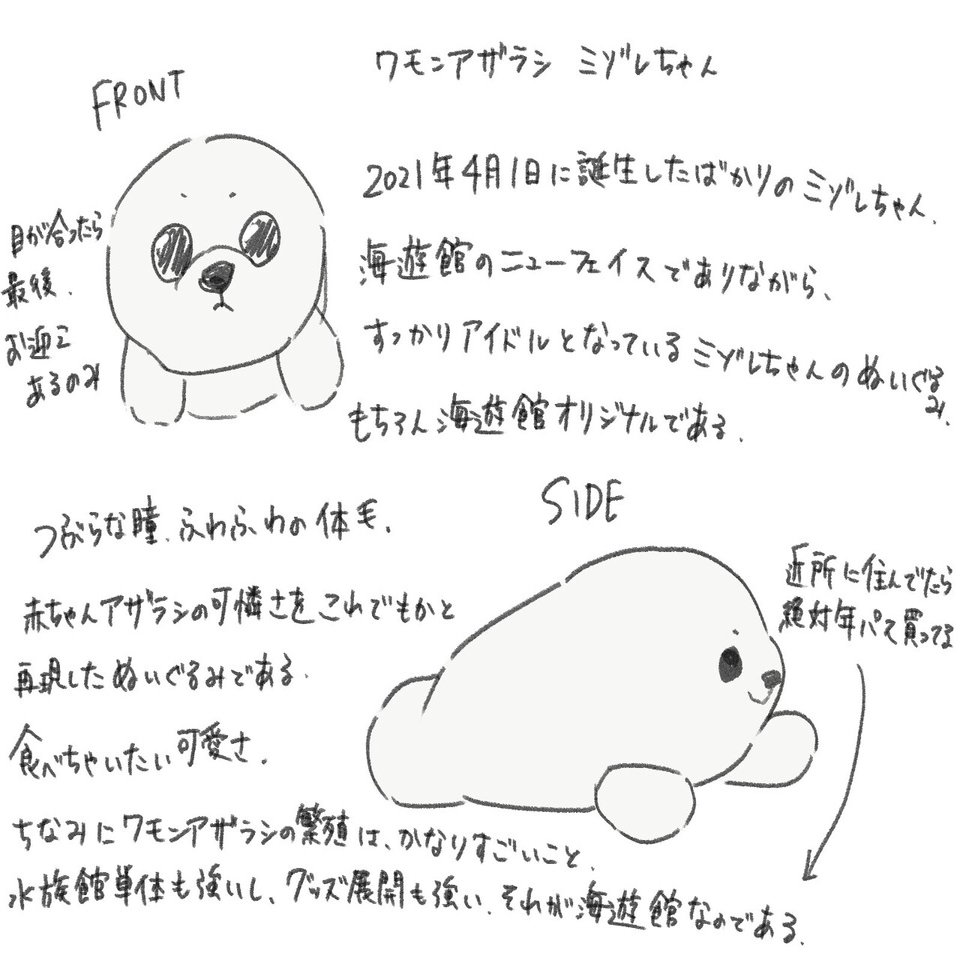 ワモンアザラシ ミゾレちゃん
FRONT
2021年4月1日に誕生したばかりのミゾレちゃん.
海遊館のニューフェイスでありながら、
すっかりアイドルとなっているミゾレちゃんのぬいぐるみ.
もちろん海遊館オリジナルである.
目が合ったら
最後.
お迎え
あるのみ
つぶらな瞳、ふわふわの体毛.
赤ちゃんアザラシの可憐さをこれでもかと
再現したぬいぐるみである.
食べちゃいたい可愛さ.
SIDE
近所に住んでたら
絶対年パス買ってる
ちなみにワモンアザラシの繁殖は、かなりすごいこと.
水族館単体も強いし、グッズ展開も強い.それが海遊館なのである.